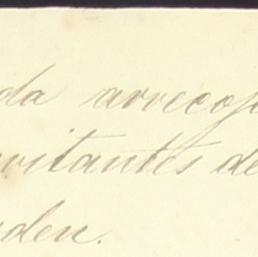 da arrecoje
vitantes de
den.